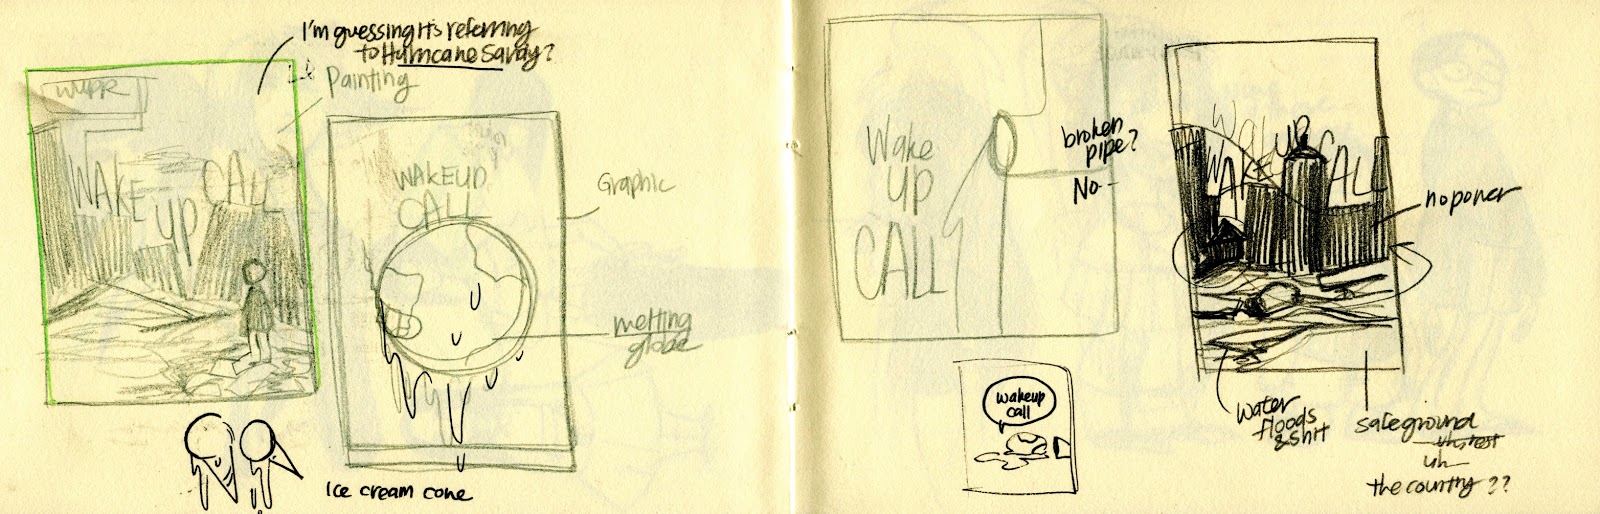 I'm guessing it's referring
to Hurricane Sandy?
Painting
WUPR
WAKE UP CALL
WAKEUP
CALL
Graphic
melting
globe
Ice cream cone
Wake
UP
CALL
broken
pipe?
No-
wakeup
call
Wakeup Call
WAKE CALL
no power
water
floods
& shit
safe ground
uh
the country??